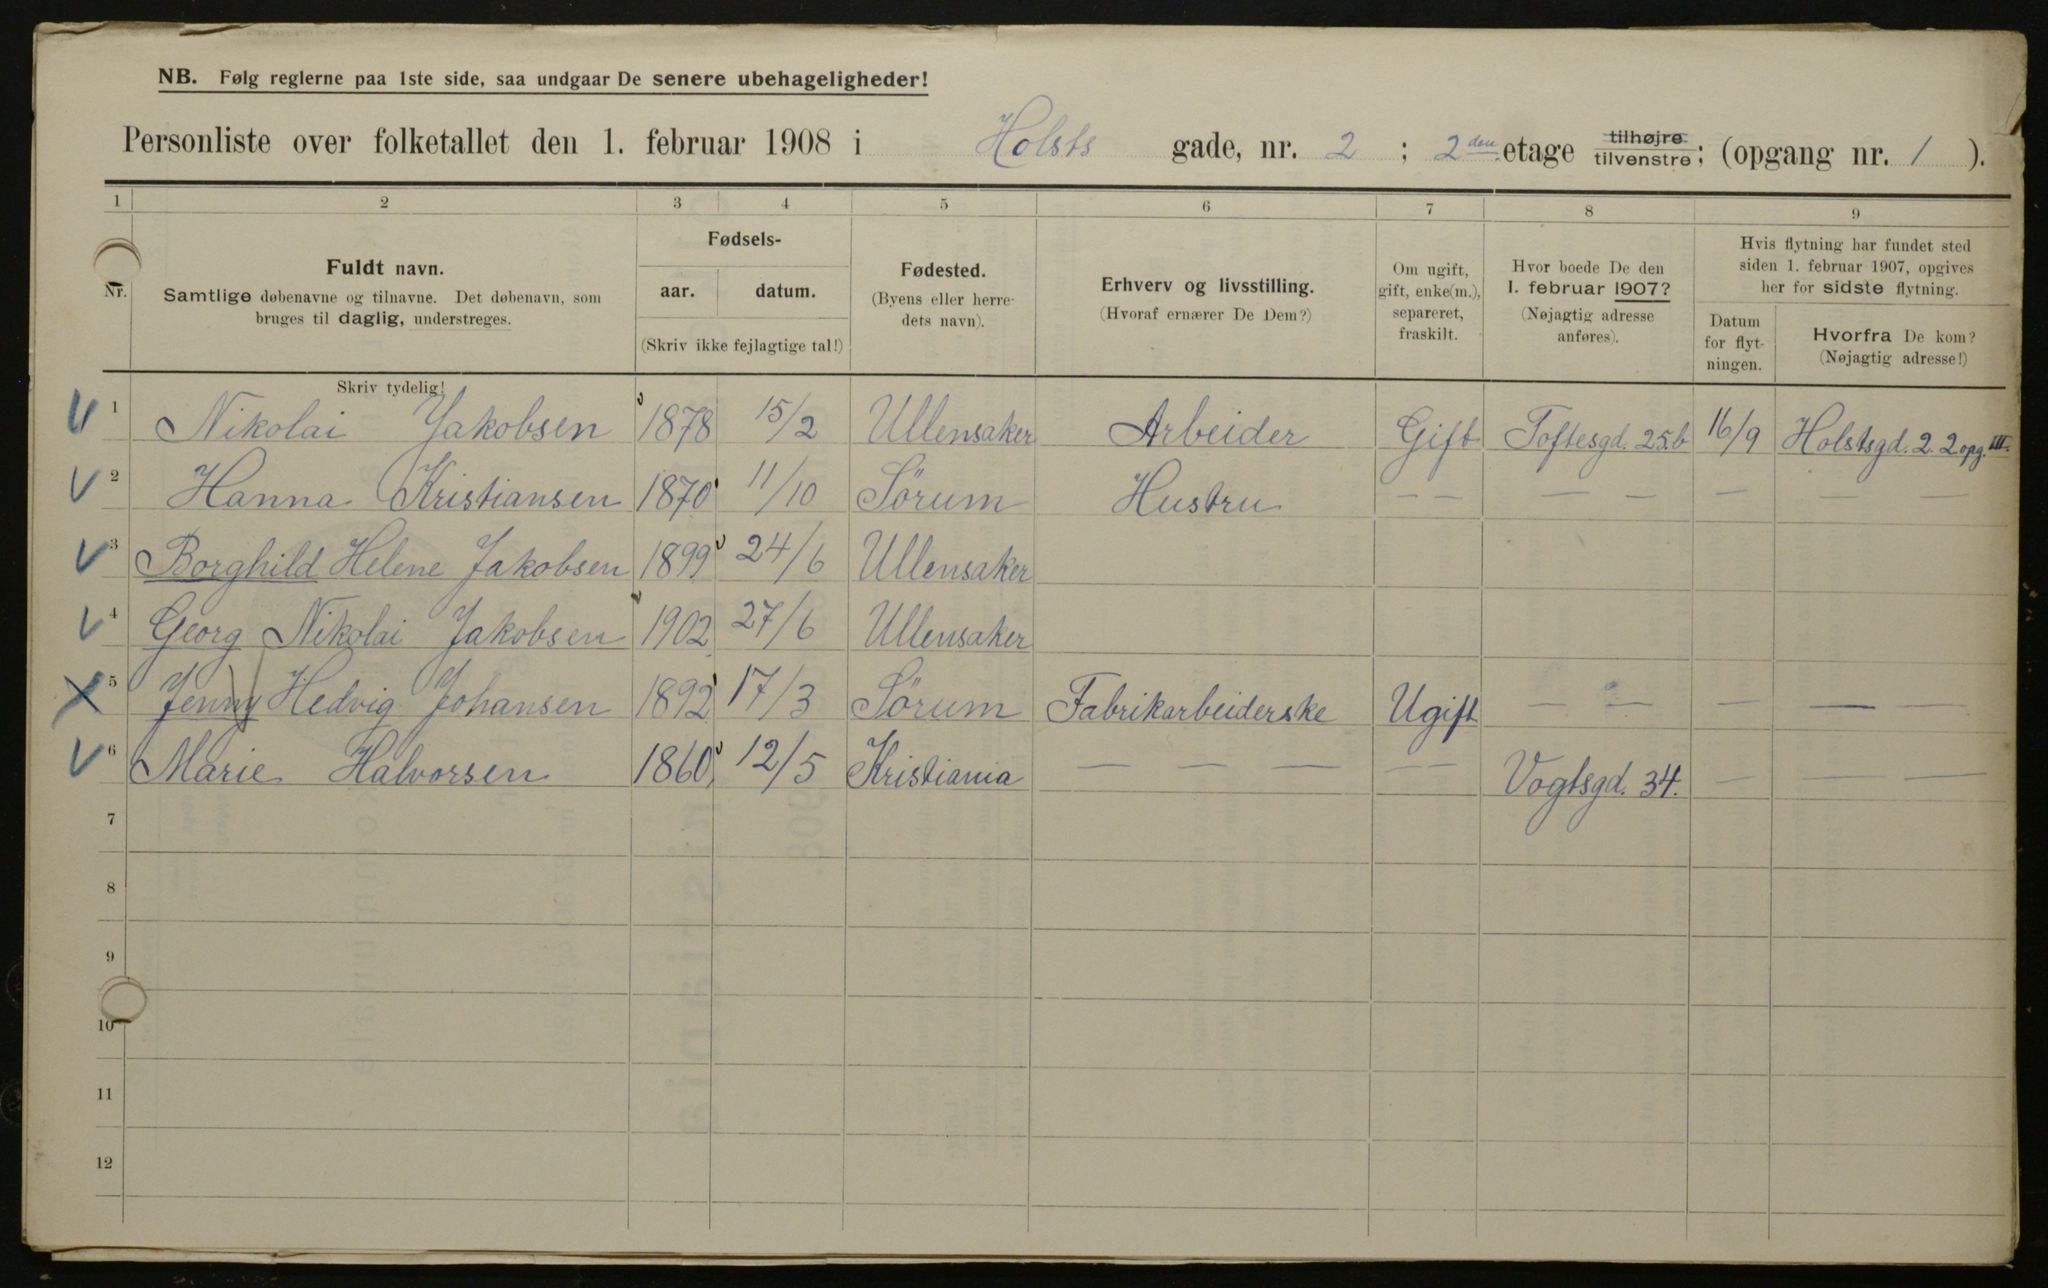 NB. Følg reglerne paa 1ste side, saa undgaar De senere ubehageligheder!
Personliste over folketallet den 1. februar 1908 i Holsts gade, nr. 2 ; 2den etage tilhøjre tilvenstre; (opgang nr. 1 ).
1 2 3 4 5 6 7 8 9
Nr.
Fuldt navn.
Samtlige døbenavne og tilnavne. Det døbenavn, som
bruges til daglig, understreges.
Skriv tydelig!
Fødsels-
aar. datum.
(Skriv ikke fejlagtige tal!)
Fødested.
(Byens eller herre-
dets navn).
Erhverv og livsstilling.
(Hvoraf ernærer De Dem?)
Om ugift,
gift, enke(m.),
separeret,
fraskilt.
Hvor boede De den
1. februar 1907?
(Nøjagtig adresse
anføres).
Hvis flytning har fundet sted
siden 1. februar 1907, opgives
her for sidste flytning.
Datum
for flyt-
ningen.
Hvorfra De kom?
(Nøjagtig adresse!)
1 Nikolai Jakobsen 1878 15/2 Ullensaker Arbeider Gift Toftesgd. 25.b 16/9 Holstsgd. 2. 2 opg. III.
2 Hanna Kristiansen 1870 11/10 Sörum Hustru — — — — — — —
3 Borghild Helene Jakobsen 1899 24/6 Ullensaker
4 Georg Nikolai Jakobsen 1902 27/6 Ullensaker
5 Jenny Hedvig Johansen 1892 17/3 Sörum Fabrikarbeiderske Ugift — — — — —
6 Marie Halvorsen 1860 12/5 Kristiania — — — — — Vogtsgd. 34. — — —
7
8
9
10
11
12